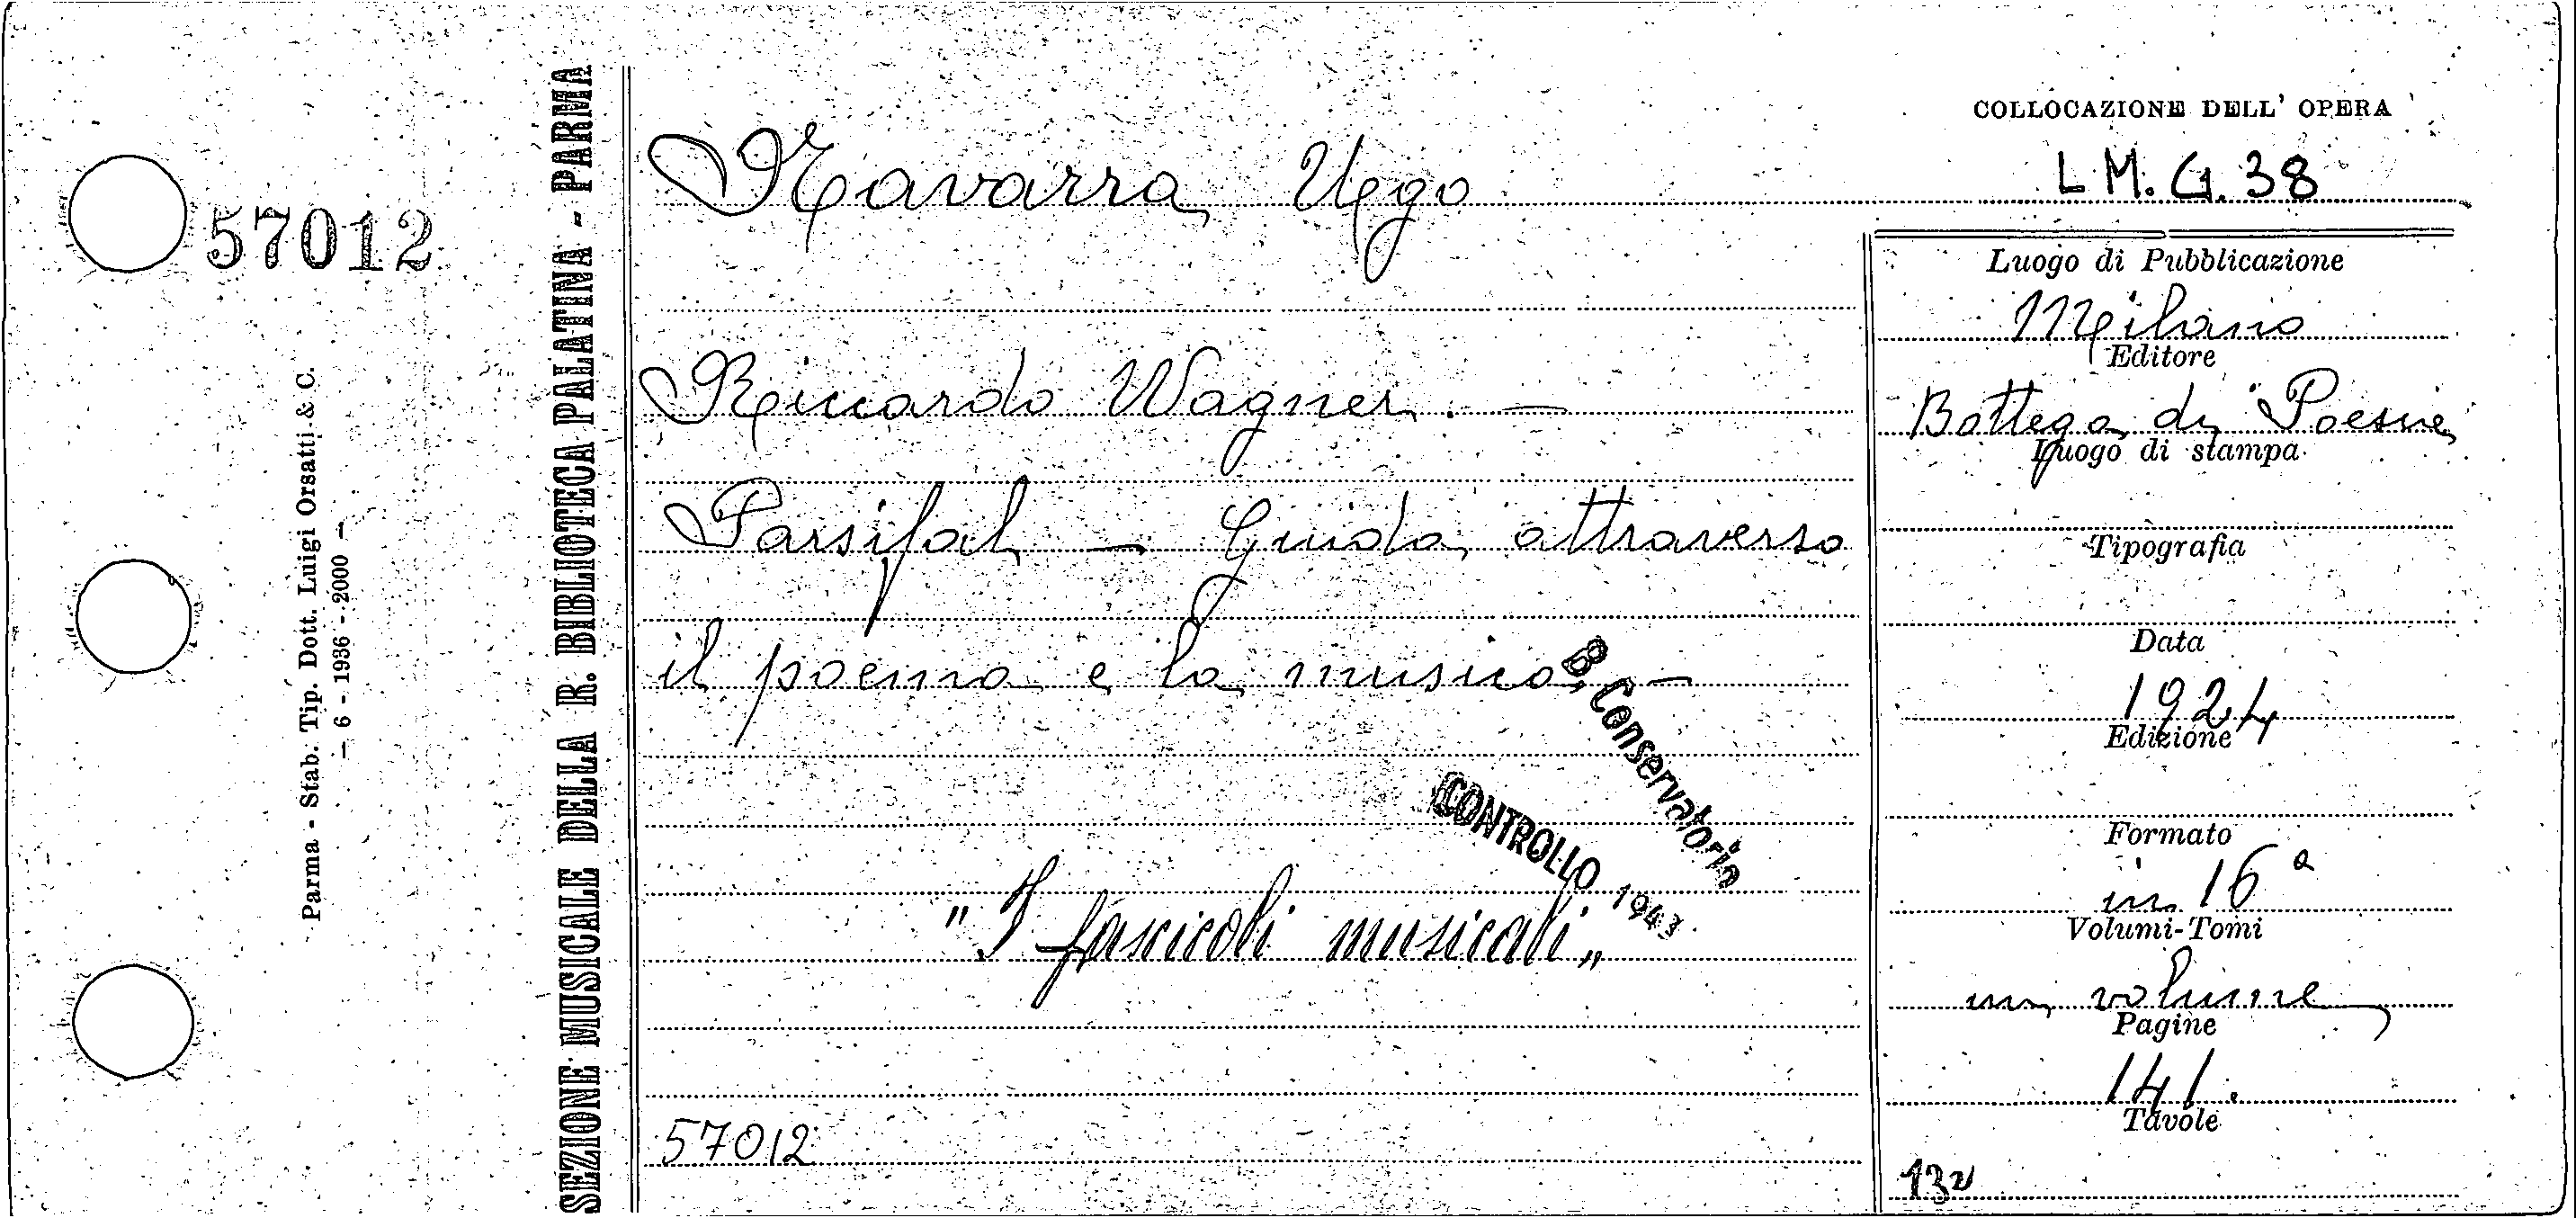 57012
Parma - Stab. Tip. Dott. Luigi Orsatti & C.
— 6 - 1936 - 2000 —
SEZIONE MUSICALE DELLA R. BIBLIOTECA PALATINA - PARMA
COLLOCAZIONE DELL' OPERA
L M. G. 38
Navarra Ugo
Riccardo Wagner. —
Parsifal — Guida attraverso
il poema e la musica. —
B. Conservatorio
CONTROLLO 1943
"I fascicoli musicali„
57012
Luogo di Pubblicazione
Milano
Editore
Bottega di Poesia
Luogo di stampa
Tipografia
Data
1924
Edizione
Formato
in 16ª
Volumi-Tomi
un volume
Pagine
141.
Tavole